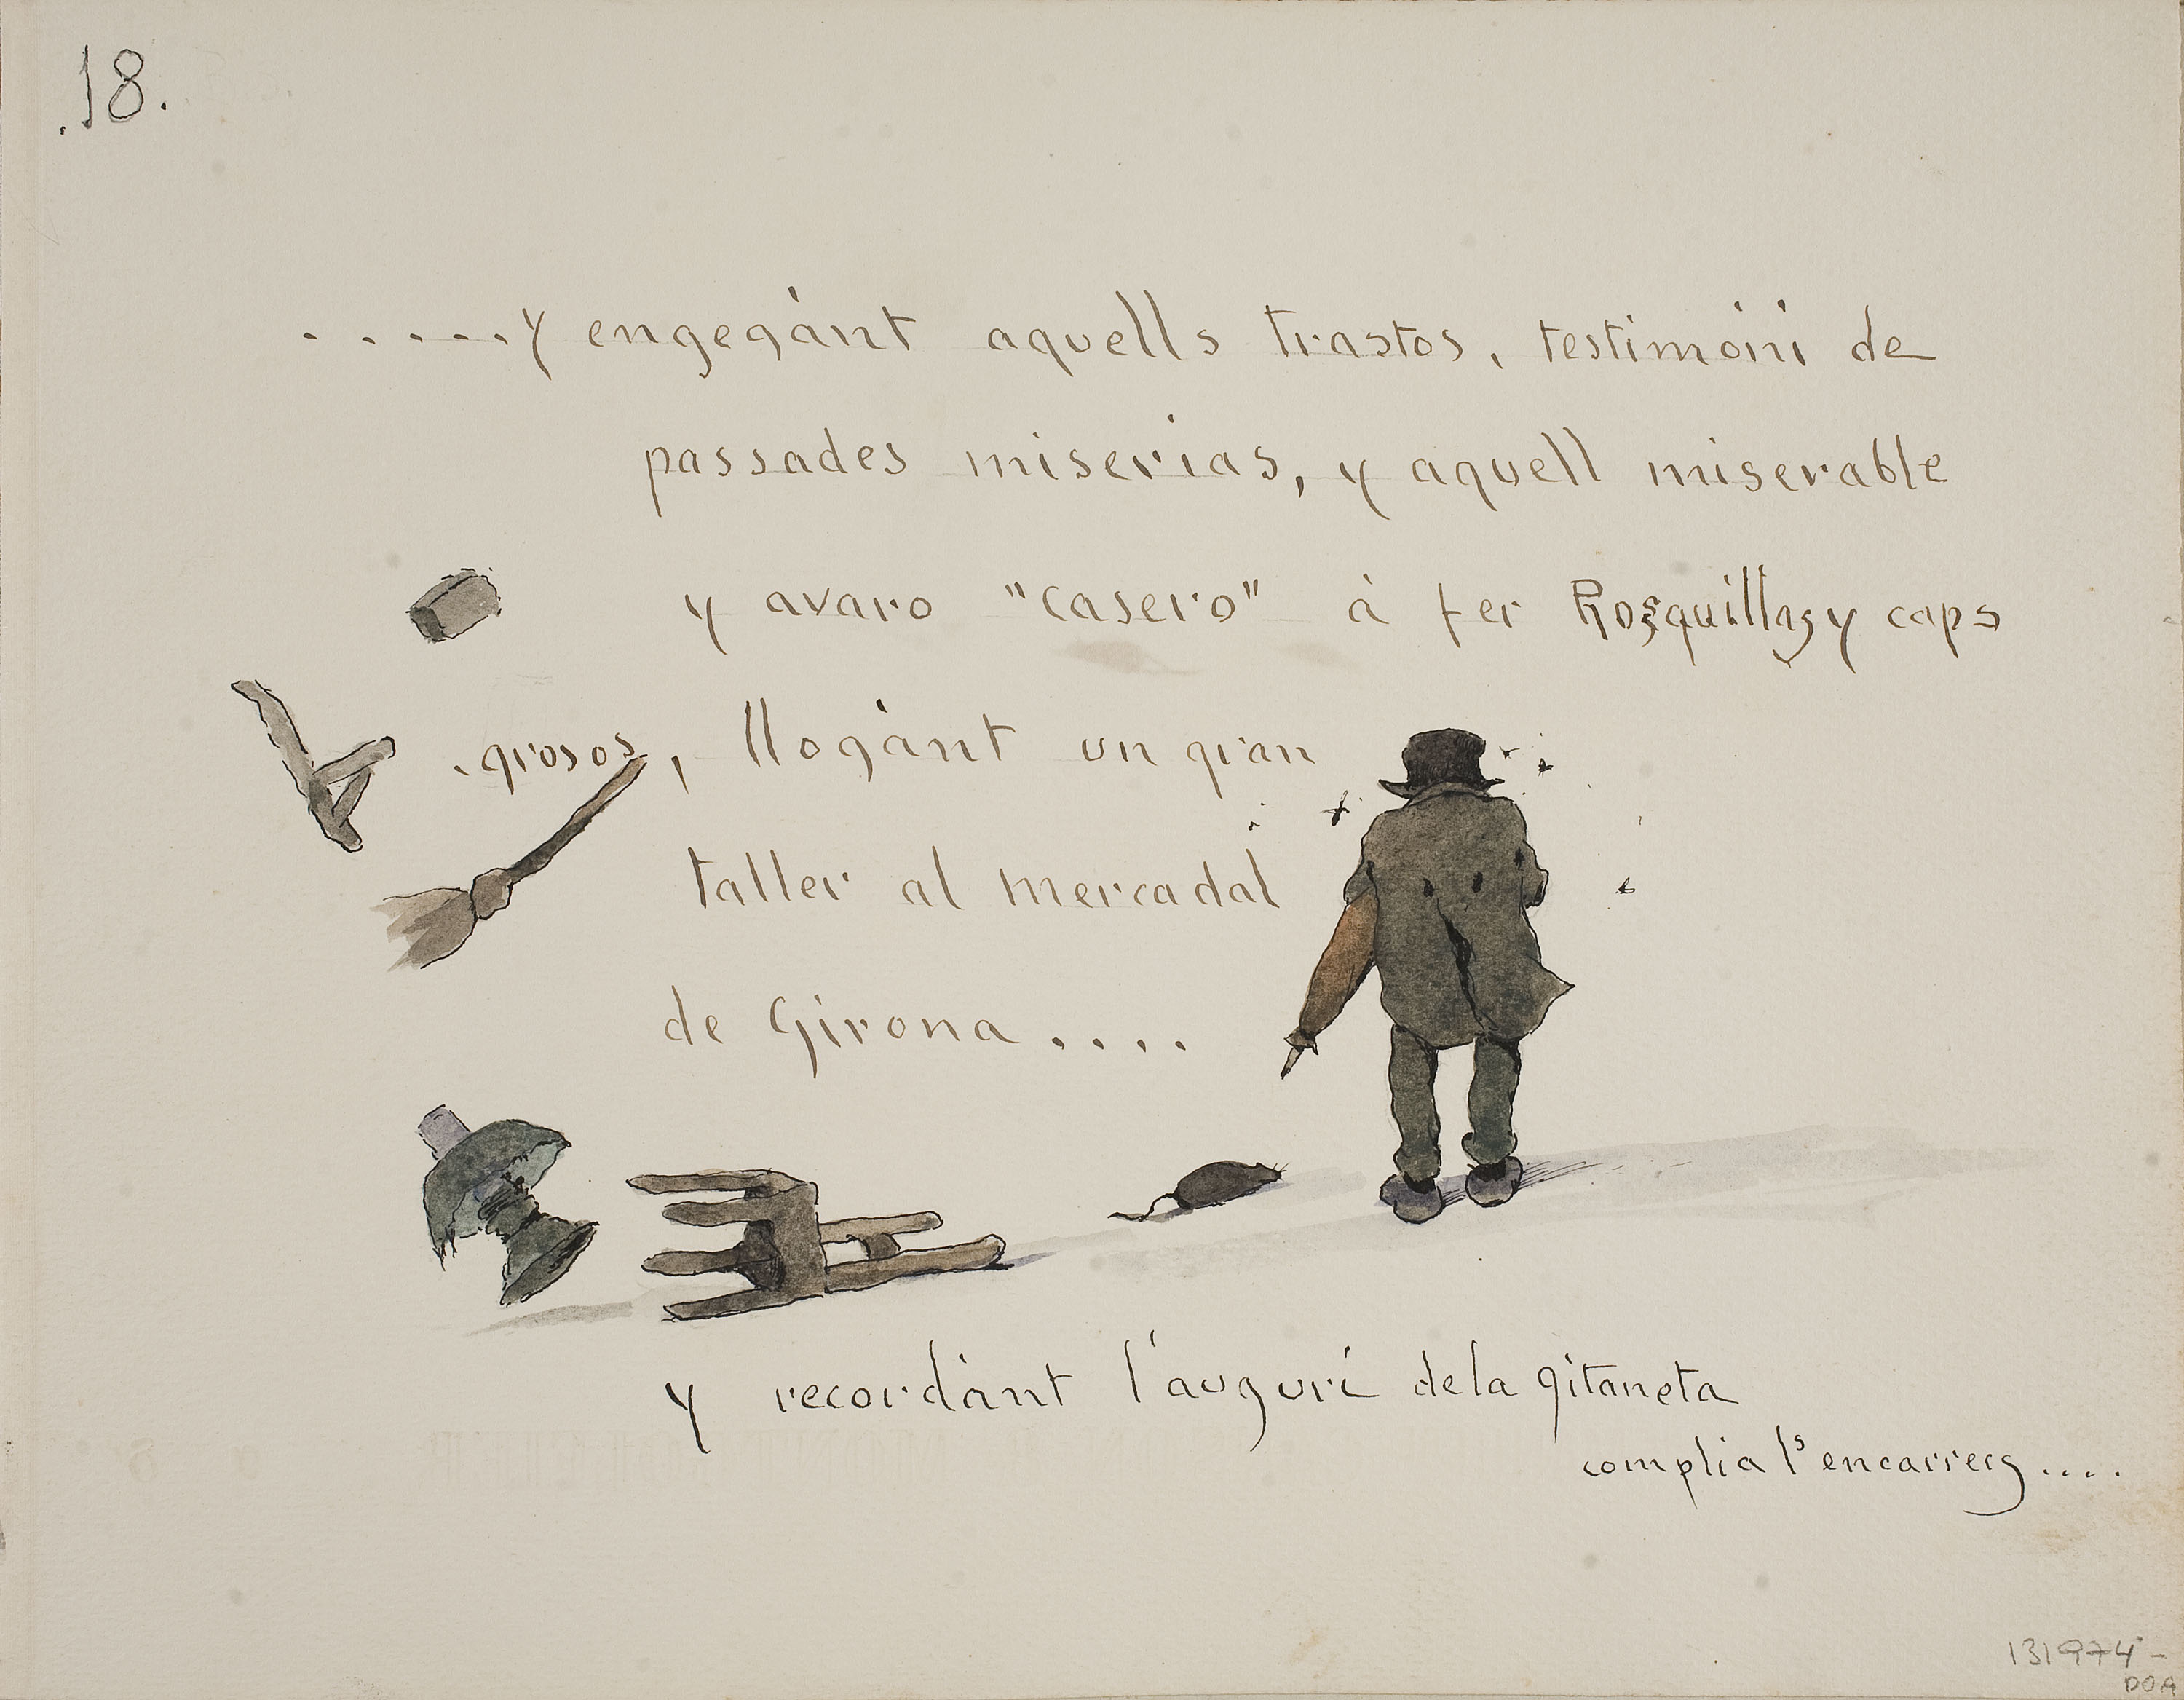 .18.
.....y engegànt aquells trastos, testimoni de
passades miserias, y aquell miserable
y avaro "casero" à fer Rosquillas y caps
.grosos, llogànt un gran
taller al mercadal
de Girona....
y recordànt l'auguri dela gitaneta
complia l's encarrecs....
131974-
DOA